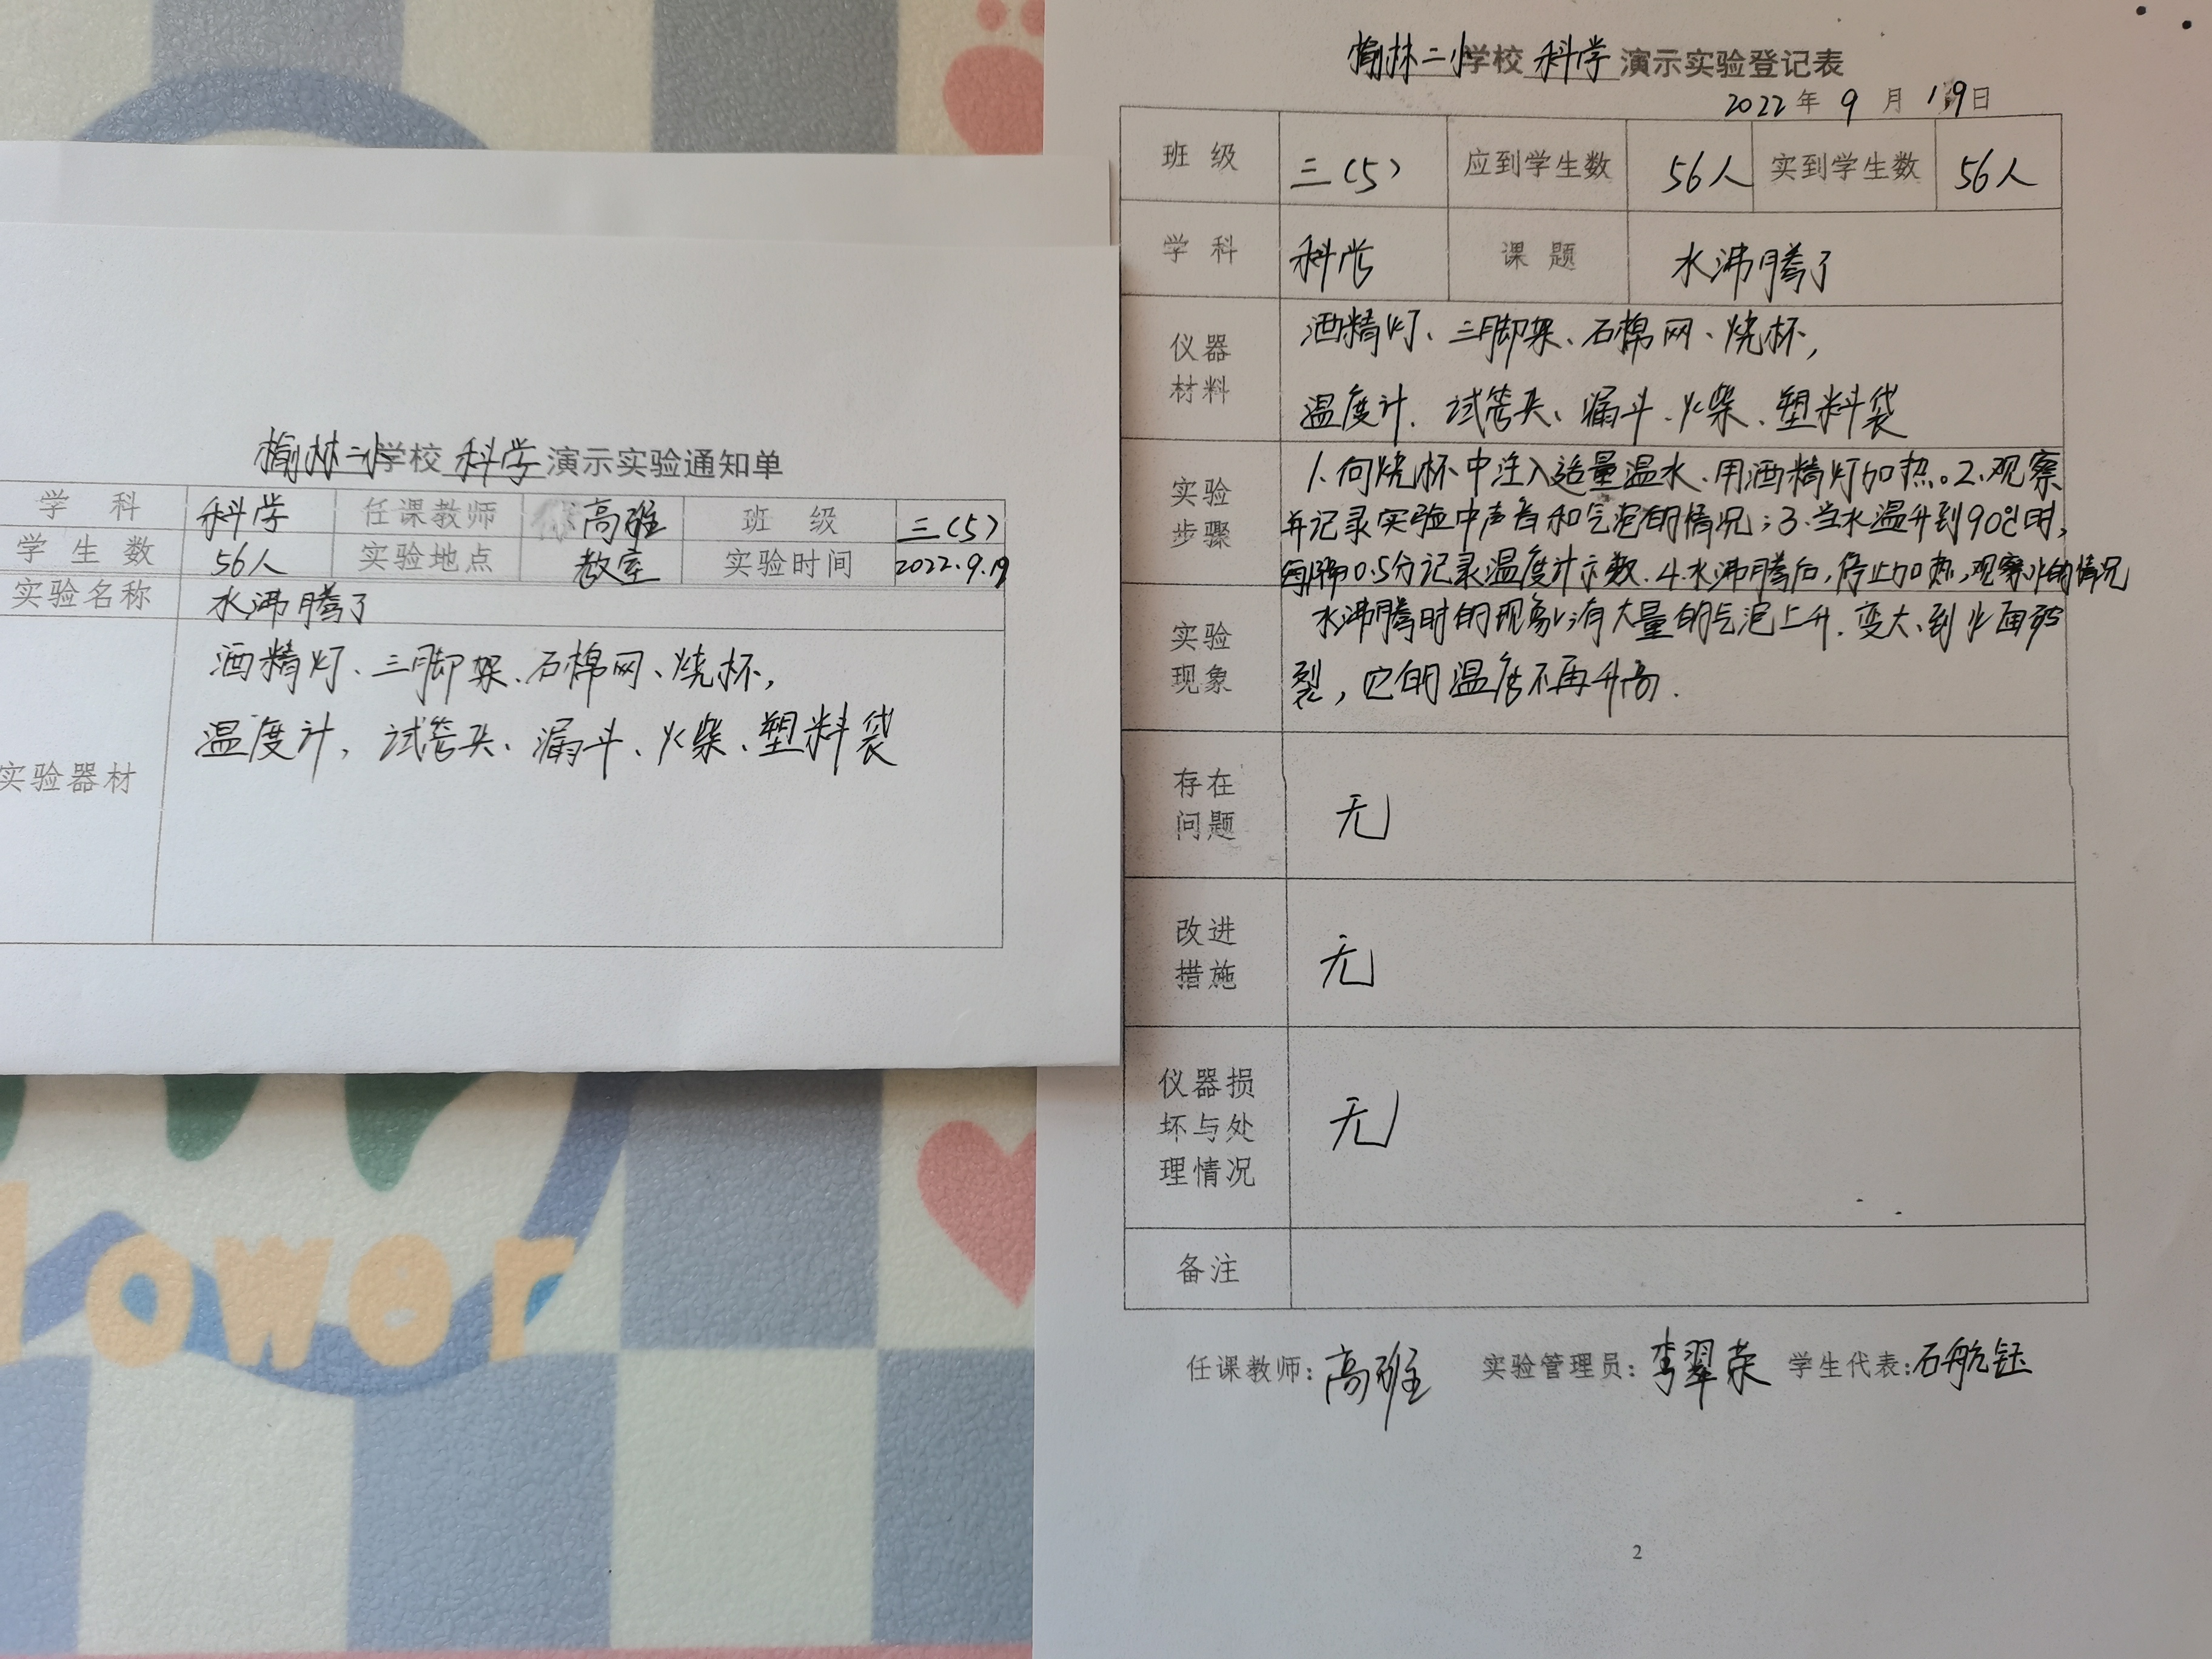 榆林二小学校 科学 演示实验通知单
学 科 科学 任课教师 高雅 班 级 三(5)
学 生 数 56人 实验地点 教室 实验时间 2022.9.19
实验名称 水沸腾了
酒精灯、三脚架、石棉网、烧杯,
温度计, 试管夹、漏斗、火柴、塑料袋
实验器材
lower
榆林二小学校 科学 演示实验登记表
2022年 9 月 19日
班 级 三(5) 应到学生数 56人 实到学生数 56人
学 科 科学 课 题 水沸腾了
仪器
材料
酒精灯、三脚架、石棉网、烧杯,
温度计. 试管夹、漏斗、火柴、塑料袋
实验
步骤
1.向烧杯中注入适量温水、用酒精灯加热。2.观察
并记录实验中声音和气泡的情况;3.当水温升到90℃时,
每隔0.5分记录温度计示数.4.水沸腾后,停止加热,观察水的情况
实验
现象
水沸腾时的现象:有大量的气泡上升、变大、到水面破
裂,它的温度不再升高.
存在
问题
无
改进
措施
无
仪器损
坏与处
理情况
无
备注
任课教师:高雅 实验管理员:李翠荣 学生代表:石航钰
2